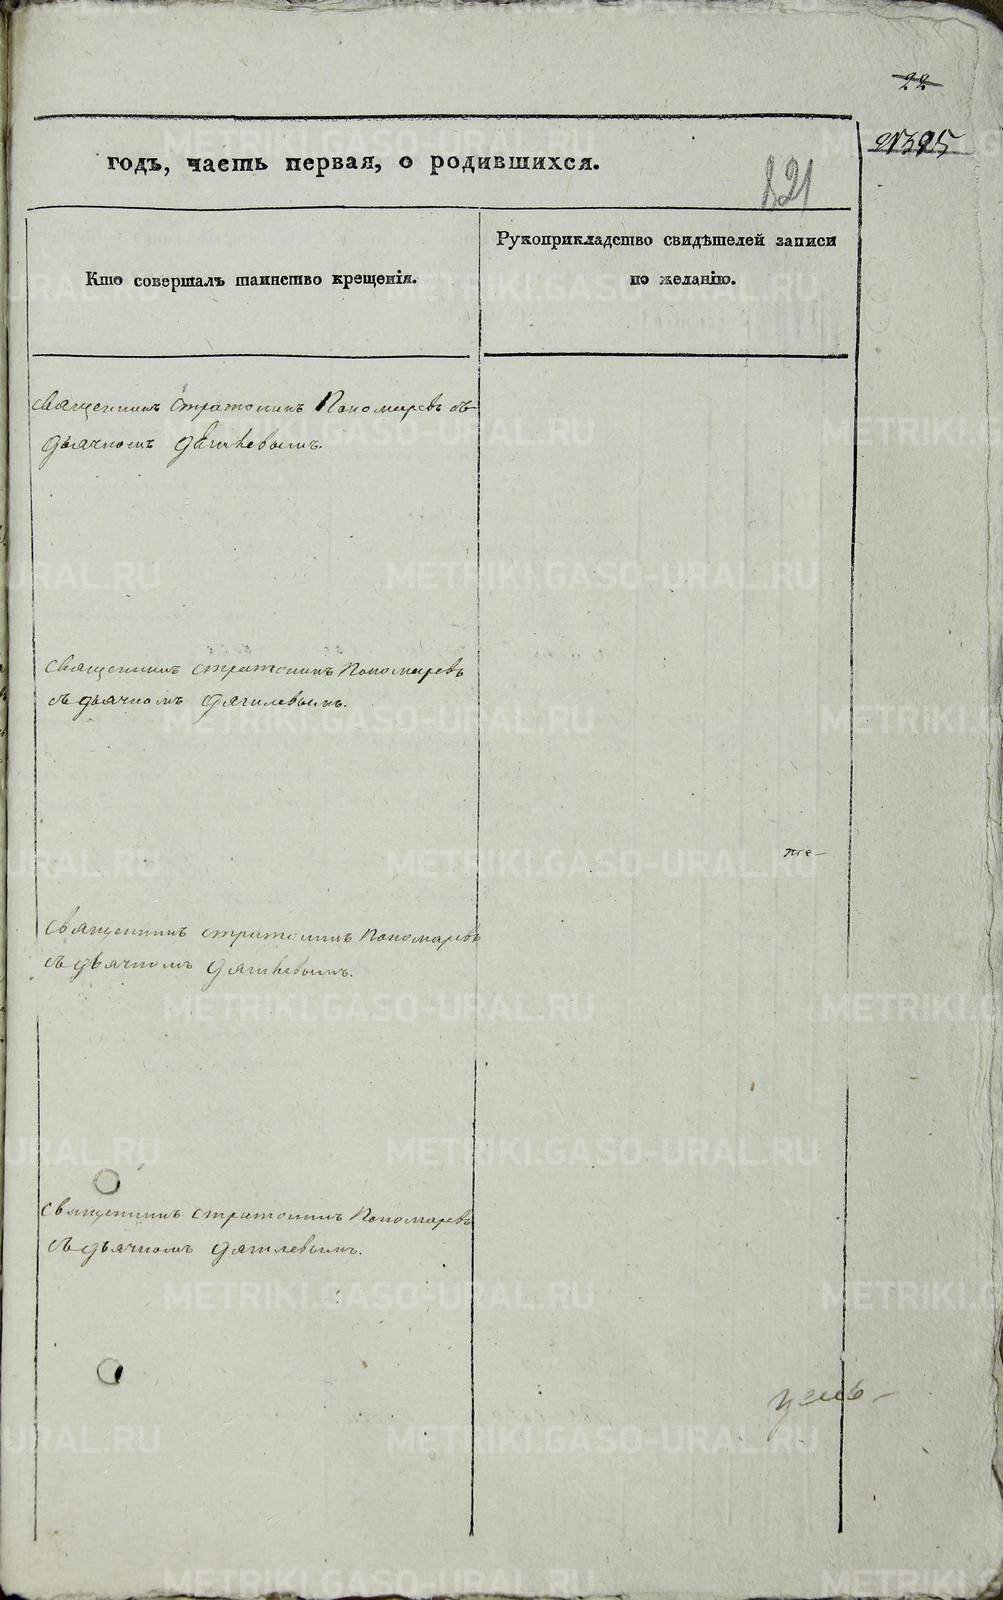 22
21325
годъ, часть первая, о родившихся.
821
Кто совершалъ таинство крещенія.
Рукоприкладство свидѣтелей записи
по желанію.
священникъ Стратоникъ Пономаревъ съ
дьячкомъ Дягилевымъ.
священникъ стратоникъ Пономаревъ
съ дьячкомъ Дягилевымъ.
священникъ стратоникъ Пономаревъ
съ дьячкомъ Дягилевымъ.
священникъ стратоникъ Пономаревъ
съ дьячкомъ Дягилевымъ.
METRIKI.GASO-URAL.RU